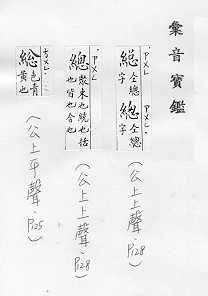 彙音寶鑑
仝總字
仝總字
(公上上聲.P128)
總
聚束也統也括
也皆也合也
(公上上聲.P128)
総
色青
黄也
(公上平聲.P125)